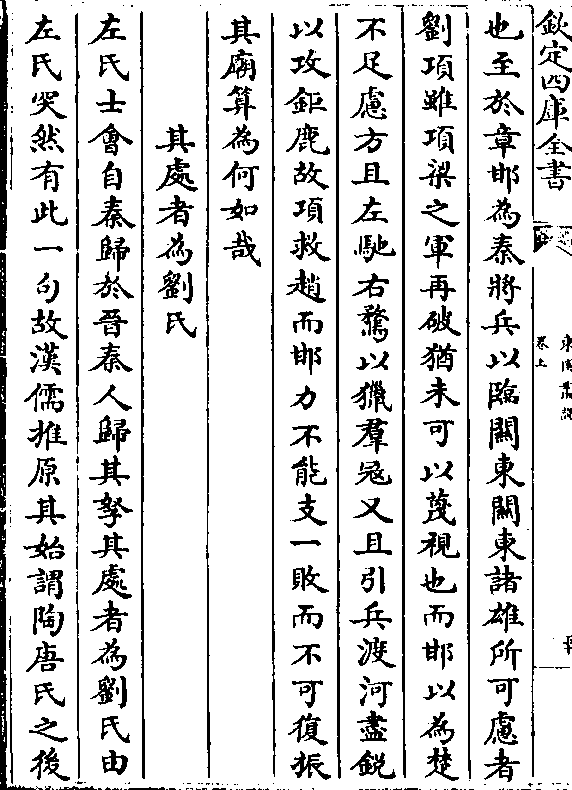 欽定四庫全書
卷上
也至於章邯為秦將兵以臨關東關東諸雄所可慮者
劉項雖項梁之軍再破猶未可以蔑視也而邯以為楚
不足慮方且左馳右騖以獵羣冦又且引兵渡河盡銳
以攻鉅鹿故項救趙而邯力不能支一敗而不可復振
其廟算為何如哉
其處者為劉氏
左氏士會自秦歸於晉秦人歸其孥其處者為劉氏由
左氏突然有此一句故漢儒推原其始謂陶唐氏之後